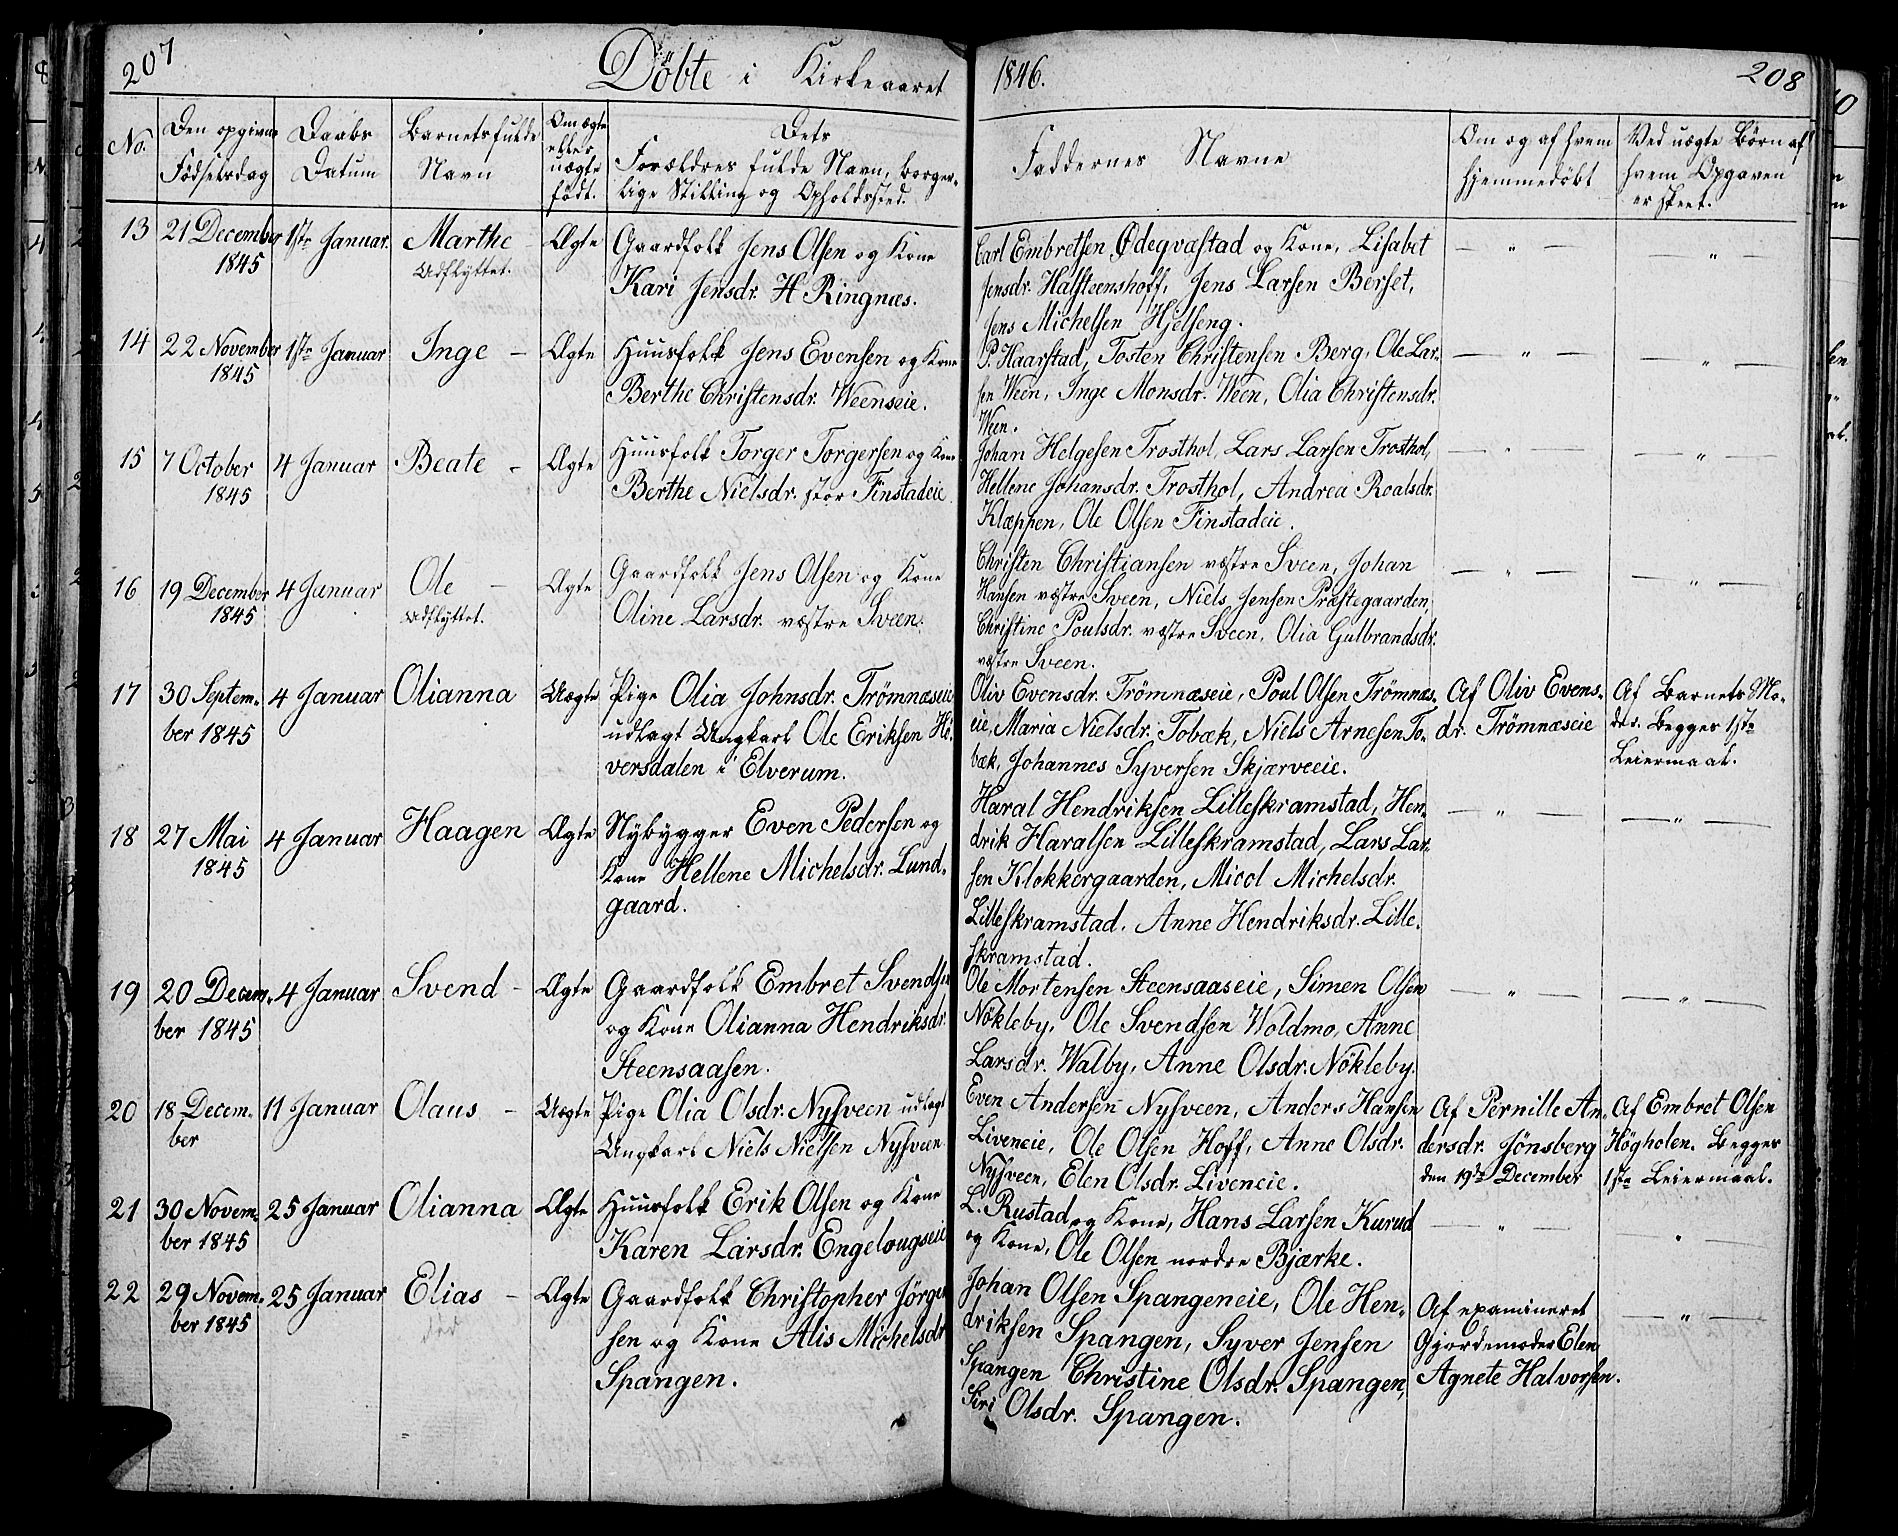 207
Döbte i Kirkeaaret
1846.
208
No.
Den opgivne
Födselsdag
Daabs
Datum
Barnets fulde
Navn
Om ægte
eller
uægte
födt.
Dets
Forældres fulde Navn, borger-
lige Stilling og Opholdssted.
Faddernes Navne
Om og af hvem
hjemmedöbt
Ved uægte Börn af
hvem Opgaven
er skeet.
13
21 December
1845
1ste Januar.
Marthe
Udflyttet.
Ægte
Gaardfolk Jens Olsen og Kone
Kari Jensdr. H Ringnæs.
Carl Embretsen Ødeqvæstad og Kone, Lisabet
Jensdr. Halsteenshoff, Jens Larsen Berset,
Jens Michelsen Hjelseng.
— " —
— " —
14
22 November
1845
1ste Januar
Inge –
Ægte
Huusfolk Jens Evensen og Kone
Berthe Christensdr. Weenseie.
P. Haarstad, Tosten Christensen Berg, Ole Lar-
sen Ween, Inge Monsdr. Ween, Olia Christensdr.
Ween.
— " —
— " —
15
7 October
1845
4 Januar
Beate –
Ægte
Huusfolk Torger Torgersen og Kone
Berthe Nielsdr. stor Finstadeie
Johan Helgesen Trosthol, Lars Larsen Trosthol,
Hellene Johansdr. Trosthol, Andrea Roalsdr.
Klæppen, Ole Olsen Finstadeie.
— " —
— " —
16
19 December
1845
4 Januar
Ole –
Udflyttet.
Ægte
Gaardfolk Jens Olsen og Kone
Oline Larsdr. vestre Sveen.
Christen Christiansen vestre Sveen, Johan
Hansen vestre Sveen, Niels Jensen Præstegaarden,
Christine Poulsdr. vestre Sveen, Olia Gulbrandsdr.
vestre Sveen.
— " —
— " —
17
30 Septem-
ber 1845
4 Januar
Olianna
Uægte
Pige Olia Johnsdr. Trömnæseie
udlagt Ungkarl Ole Eriksen He-
versdalen i Elverum.
Oliv Evensdr. Trömnæseie, Poul Olsen Trömnæs-
eie, Maria Nielsdr. Tobæk, Niels Arnesen To-
bæk, Johannes Syversen Skjærveeie.
Af Oliv Evens-
dr. Trömnæseie
Af Barnets Mo-
der. Begges 1ste
Leiermaal.
18
27 Mai
1845
4 Januar
Haagen
Ægte
Nybygger Even Pedersen og
Kone Hellene Michelsdr. Lund-
gaard.
Haral Hendriksen Lilleskramstad, Hen-
drik Haralsen Lilleskramstad, Lars Lar-
sen Klokkergaarden, Micol Michelsdr.
Lilleskramstad. Anne Hendriksdr. Lille-
skramstad.
— " —
— " —
19
20 Decem-
ber 1845
4 Januar
Svend –
Ægte
Gaardfolk Embret Svendsen
og Kone Olianna Hendriksdr.
Steensaasen.
Ole Mortensen Steensaaseie, Simen Olsen
Nökleby, Ole Svendsen Woldmo, Anne
Larsdr. Walby, Anne Olsdr. Nökleby.
— " —
— " —
20
18 Decem-
ber
11 Januar
Olaus –
Uægte
Pige Olia Olsdr. Nysveen udlagt
Ungkarl Niels Nielsen Nysveen
Even Andersen Nysveen, Anders Hansen
Liveneie, Ole Olsen Hoff, Anne Olsdr.
Nysveen, Elen Olsdr. Liveneie.
Af Pernille An-
dersdr. Jönsberg
den 19de December
Af Embret Olsen
Högholen. Begges
1ste Leiermaal.
21
30 Novem-
ber 1845
25 Januar
Olianna
Ægte
Huusfolk Erik Olsen og Kone
Karen Larsdr. Engelaugseie
L. Rustad og Kone, Hans Larsen Kurud
og Kone, Ole Olsen nordre Bjærke.
— " —
— " —
22
29 Novem-
ber 1845
25 Januar
Elias –
död
Ægte
Gaardfolk Christopher Jörgen-
sen og Kone Alis Michelsdr.
Spangen.
Johan Olsen Spangeneie, Ole Hen-
driksen Spangen, Syver Jensen
Spangen Christine Olsdr. Spangen,
Siri Olsdr. Spangen.
Af examineret
Gjordemoder Elen
Agnete Halvorsen.
— " —